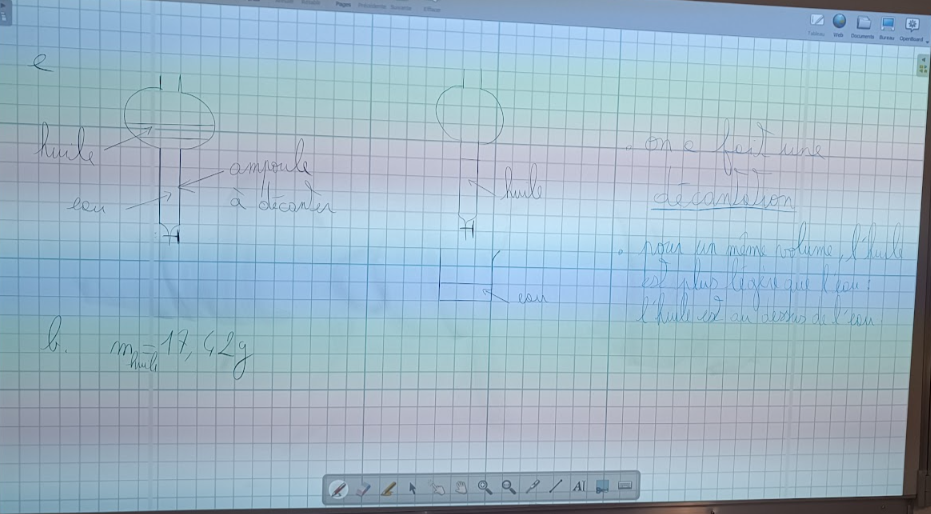 Pages
Web
Documents
Bureau
OpenBoard
e
huile
eau
ampoule
à décanter
huile
eau
. on a fait une
décantation
. pour un même volume, l'huile
est plus légère que l'eau :
l'huile est au dessus de l'eau
b. m huile = 17,42g